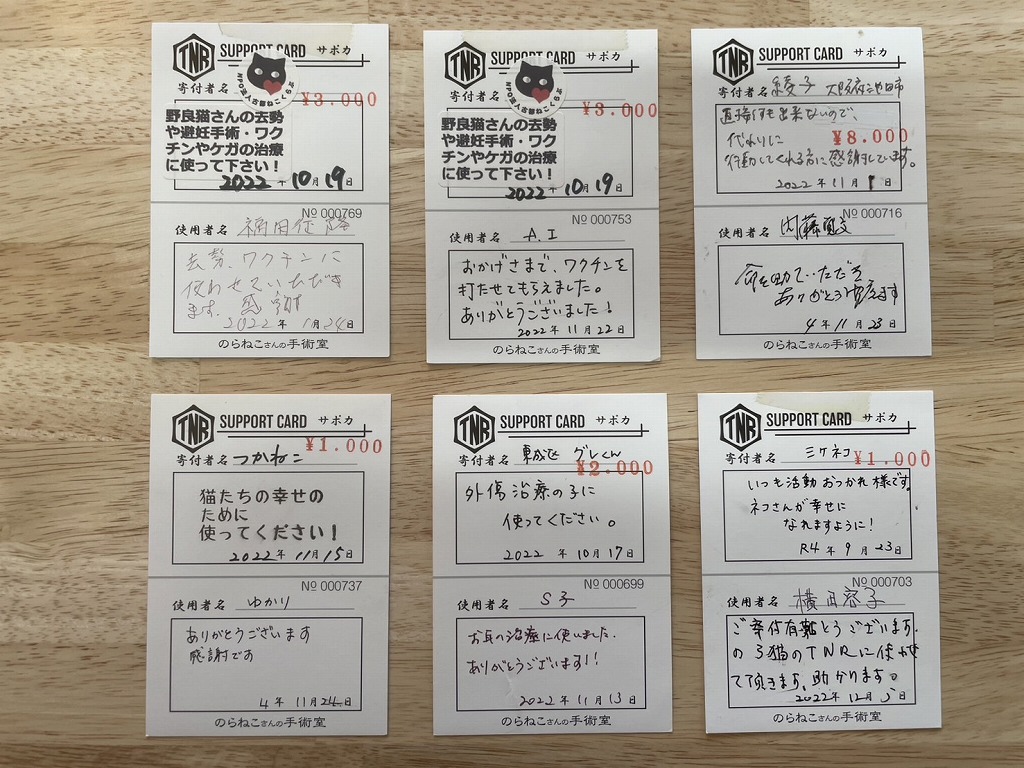 TNR SUPPORT CARD サポカ
NPO法人古都ねこくらぶ
寄付者名
¥3.000
野良猫さんの去勢
や避妊手術・ワク
チンやケガの治療
に使って下さい！
2022年10月19日
№000769
使用者名
去勢、ワクチンに
使わせていただき
ます。感謝
2022年 月24日
のらねこさんの手術室
TNR SUPPORT CARD サポカ
NPO法人古都ねこくらぶ
寄付者名
¥3.000
野良猫さんの去勢
や避妊手術・ワク
チンやケガの治療
に使って下さい！
2022年10月19日
№000753
使用者名 A.I
おかげさまで、ワクチンを
打たせてもらえました。
ありがとうございました！
2022年11月22日
のらねこさんの手術室
TNR SUPPORT CARD サポカ
寄付者名 綾子 大阪府池田市
直接何も出来ないので、
代わりに
¥8.000
行動してくれる方に感謝しています。
2022年11月1日
№000716
使用者名 内藤
命を助ていただき
ありがとう御座ます
4年11月23日
のらねこさんの手術室
TNR SUPPORT CARD サポカ
¥1.000
寄付者名 つかねこ
猫たちの幸せの
ために
使ってください！
2022年11月15日
№000737
使用者名 ゆかり
ありがとうございます
感謝です
4年11月24日
のらねこさんの手術室
TNR SUPPORT CARD サポカ
寄付者名 東成区 グレくん
¥2.000
外傷治療の子に
使ってください。
2022年10月17日
№000699
使用者名 S子
お耳の治療に使いました.
ありがとうございます!!
2022年11月13日
のらねこさんの手術室
TNR SUPPORT CARD サポカ
寄付者名 ミケネコ
¥1.000
いつも活動おつかれ様です。
ネコさんが幸せに
なれますように！
R4年9月23日
№000703
使用者名 横田容子
ご寄付有難とうございます.
の ら猫のTNRに使わせ
て頂きます、助かります。
2022年12月5日
のらねこさんの手術室